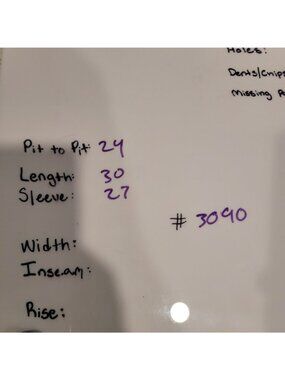 Holes:
Dents/Chips
Missing
Pit to Pit: 24
Length: 30
Sleeve: 27
# 3090
Width:
Inseam:
Rise: